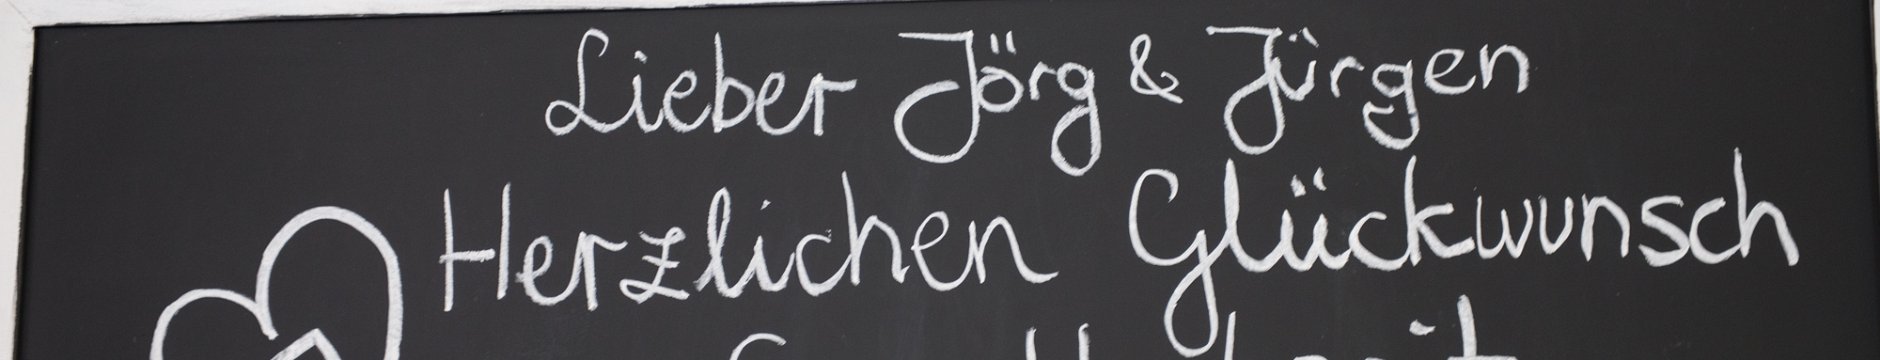 Lieber Jörg & Jürgen
Herzlichen Glückwunsch